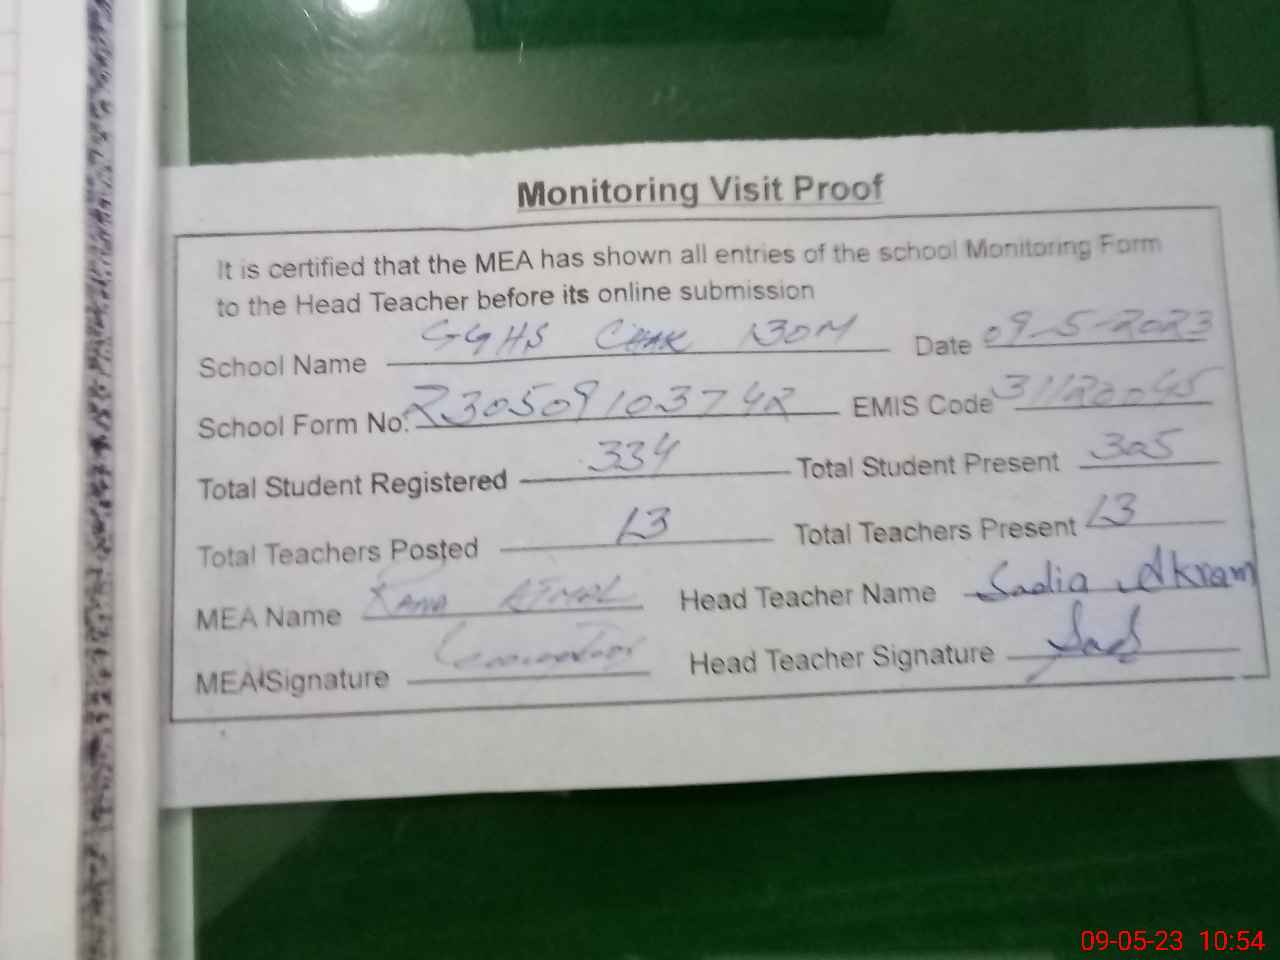 Monitoring Visit Proof
It is certified that the MEA has shown all entries of the school Monitoring Form
to the Head Teacher before its online submission
School Name GGHS Chak 130M Date 09-5-2023
School Form No. R30509103742 EMIS Code 31120045
Total Student Registered 334 Total Student Present 305
Total Teachers Posted 13 Total Teachers Present 13
MEA Name Rana Ajmal Head Teacher Name Sadia Akram
MEA Signature Head Teacher Signature Sad
09-05-23 10:54